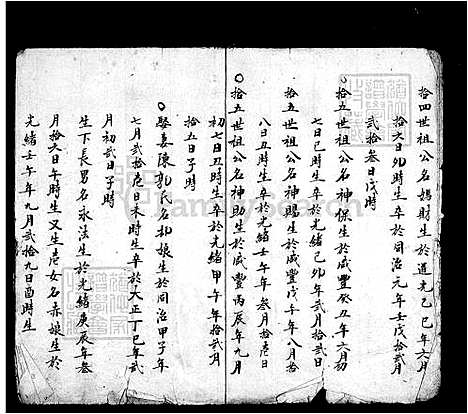 拾四世祖公名媽財生於道光乙巳年六月
拾六日卯時生卒於同治元年壬戌拾貳月
貳拾叁日戌時
拾五世祖公名神保生於咸豐癸丑年六月初
七日巳時生卒於光緒己卯年貳月拾貳日
拾五世祖公名神賜生於咸豐戊午年八月拾
八日丑時生卒於光緒壬午年叁月拾壱日
拾五世祖公名神助生於咸豐丙辰年九月
初七日丑時生卒於光緒甲午年拾貳月
拾五日子時
娶妻陳郭氏名扣娘生於同治甲子年
七月貳拾壱日未時生卒於大正丁巳年貳
月初貳日子時
生下長男名永法生於光緒庚辰年叁
月拾六日午時生又生壱女名赤娘生於
光緒壬午年九月貳拾九日酉時生
FamilySearch